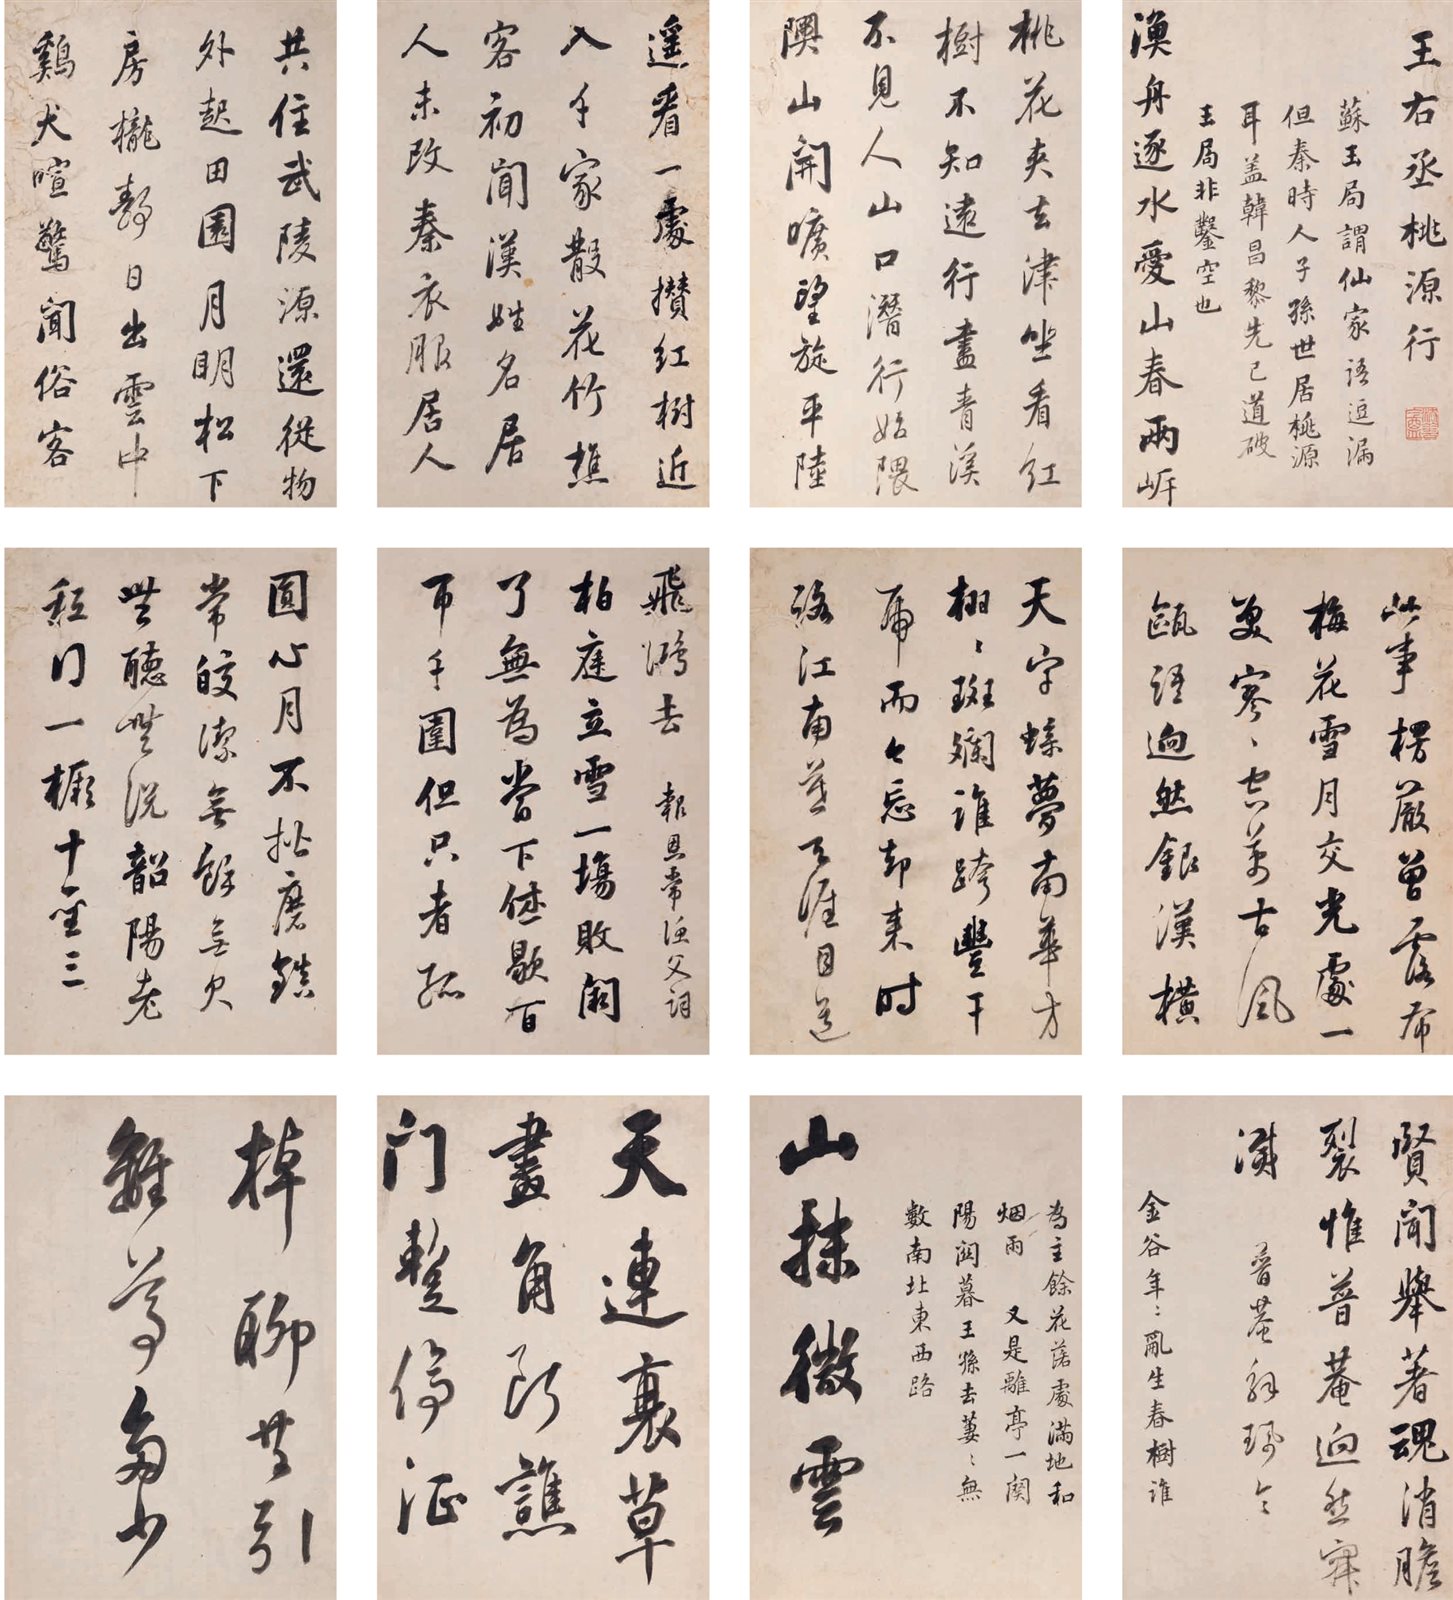 王右丞桃源行
蘇玉局謂仙家語逗漏
但秦時人子孫世居桃源
耳盖韓昌黎先已道破
玉局非鑿空也
漁舟逐水愛山春兩岸
桃花夾去津坐看紅
樹不知遠行盡青溪
不見人山口潛行始隈
隩山開曠望旋平陸
遥看一處攅紅樹近
入千家散花竹樵
客初聞漢姓名居
人未改秦衣服居人
共住武陵源還從物
外起田園月明松下
房櫳靜日出雲中
鷄犬喧驚聞俗客
此事楞嚴曾露布
梅花雪月交光處一
笑寥〻空萬古風
甌語迥然銀漢橫
天宇蝶夢南華方
栩〻斑斕誰跨豐干
虎而今忘却来时
路江南暮天涯目送
飛鴻去 報恩常演父詞
柏庭立雪一場敗闕
了無為當下休歇百
帀千圍但只者孤
圓心月不揩磨鎮
常皎潔無餘無欠
無聽無説韶陽老
紅門一橛十聖三
賢聞舉著魂消膽
裂惟普菴迥然寐
滅 普菴
金谷年〻亂生春樹誰
為主餘花落處滿地和
烟雨 又是離亭一闋
陽闗暮王孫去萋〻無
數南北東西路
山抹微雲
天連衰草
畫角斷譙
門蹔停征
棹聊共引
離尊多少